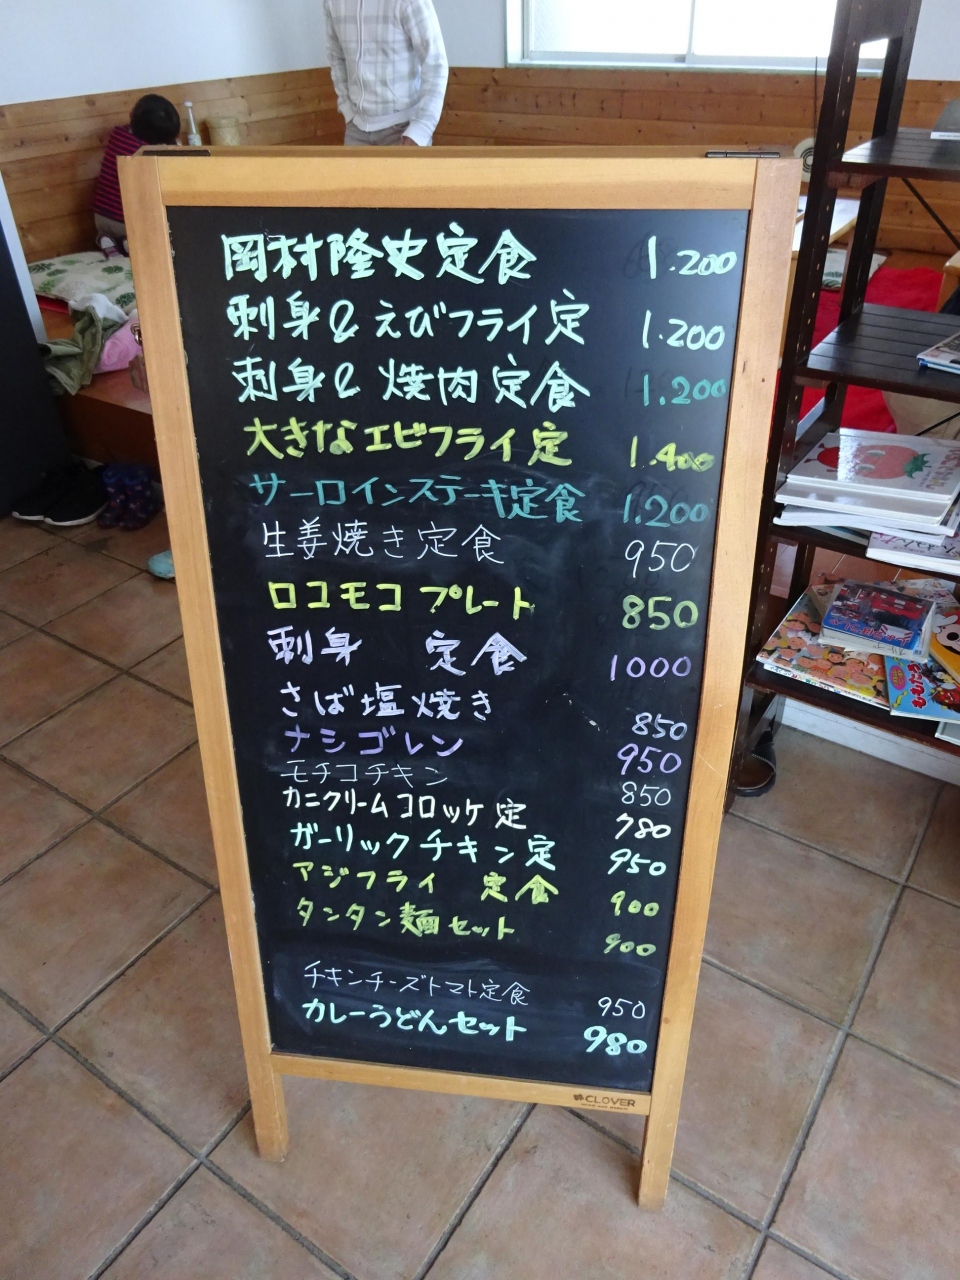 岡村隆史定食 1.200
刺身&えびフライ定 1.200
刺身&焼肉定食 1.200
大きなエビフライ定 1.400
サーロインステーキ定食 1.200
生姜焼き定食 950
ロコモコプレート 850
刺身 定食 1000
さば塩焼き 850
ナシゴレン 950
モチコチキン 850
カニクリームコロッケ定 780
ガーリックチキン定 950
アジフライ 定食 900
タンタン麺セット 900
チキンチーズトマト定食 950
カレーうどんセット 980
CLOVER
ももたろう